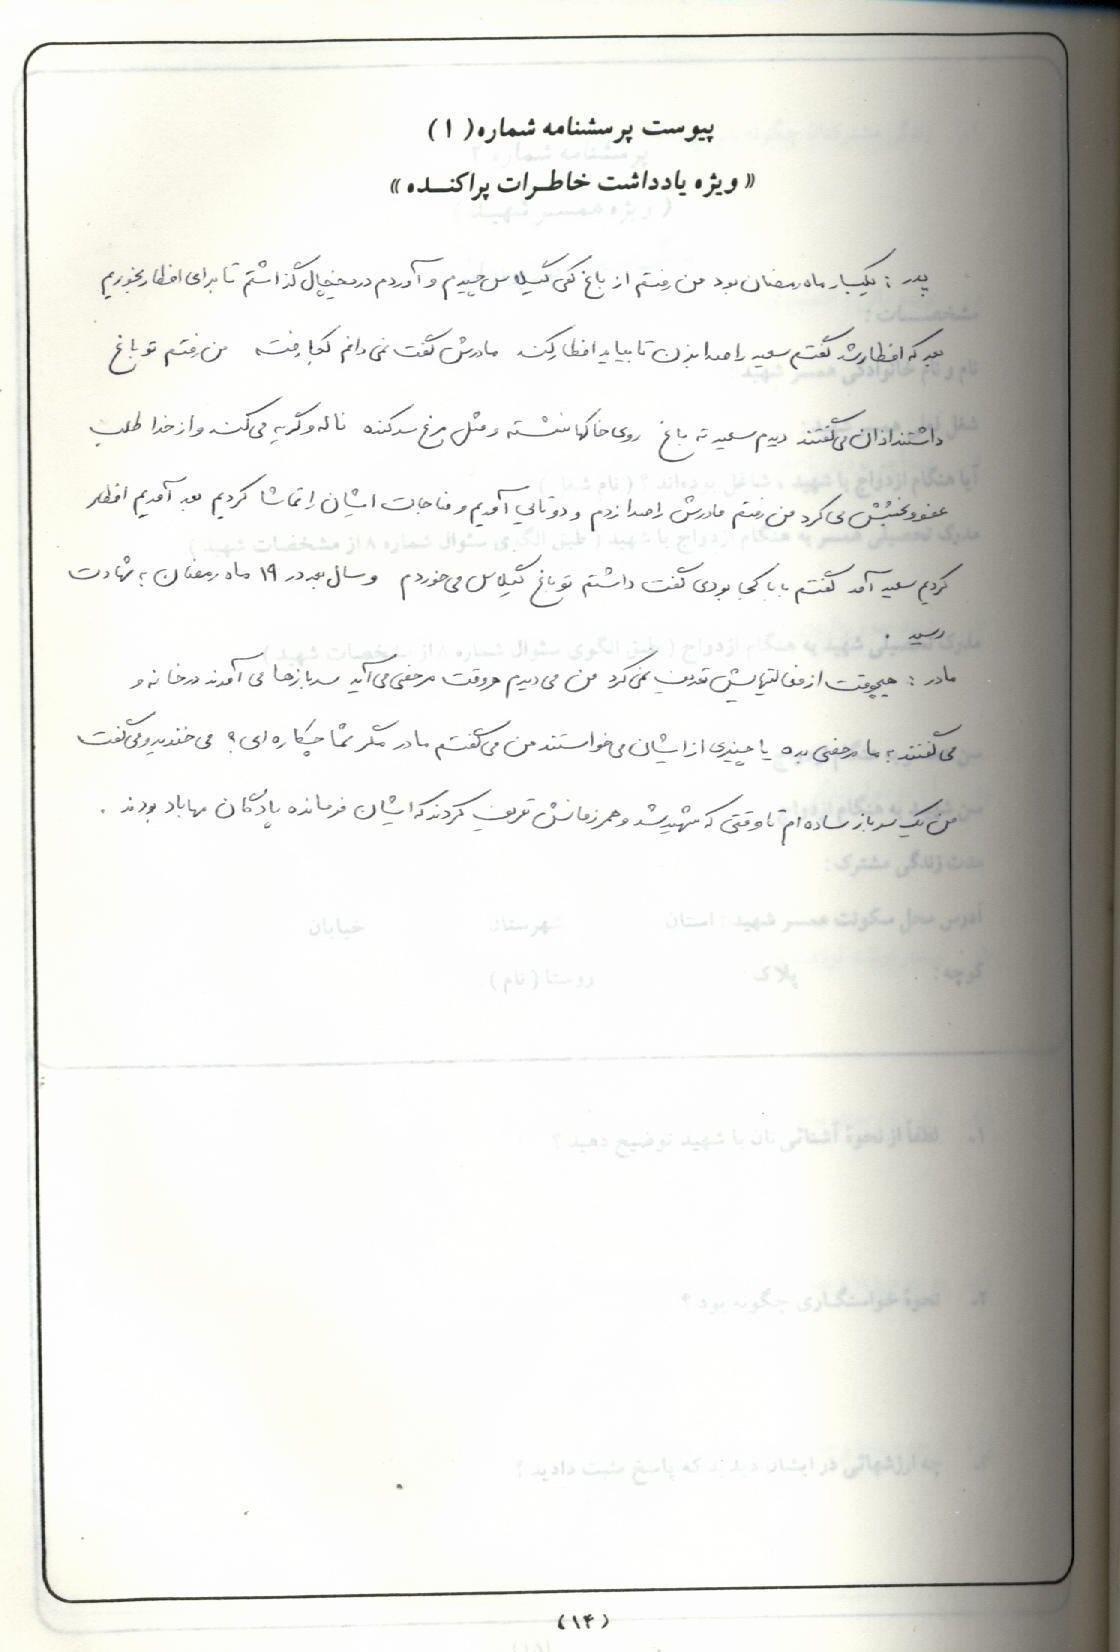 پیوست پرسشنامه شماره ( ۱ )
« ویژه یادداشت خاطرات پراکنده »
پدر : یکبار ماه رمضان بود من رفتم از باغ کمی گیلاس چیدم و آوردم در یخچال گذاشتم تا برای افطار بخوریم
بعد که افطار شد گفتم سعید را صدا بزن تا بیاید افطار کند مادرش گفت نمی دانم کجا رفته من رفتم تو باغ
داشتند اذان می گفتند دیدم سعید ته باغ روی خاکها نشسته و مثل مرغ سرکنده ناله و گریه می کند و از خدا طلب
عفو و بخشش می کرد من رفتم مادرش را صدا زدم و دوتایی آمدیم و مناجات ایشان را تماشا کردیم بعد آمدیم افطار
کردیم سعید آمد گفتم بابا کجا بودی گفت داشتم تو باغ گیلاس می خوردم و سال بعد در ۱۹ ماه رمضان به شهادت
رسید .
مادر : هیچوقت از فعالیتهایش تعریف نمی کرد من می دیدم هر وقت مرخصی می آید سربازها می آمدند در خانه و
می گفتند به ما مرخصی بده یا چیزی از ایشان می خواستند من می گفتم مادر مگر شما چکاره ای ؟ می خندید و می گفت
من یک سرباز ساده ام تا وقتی که شهید شد و همرزمانش تعریف کردند که ایشان فرمانده پادگان مهاباد بودند .
(۱۴)